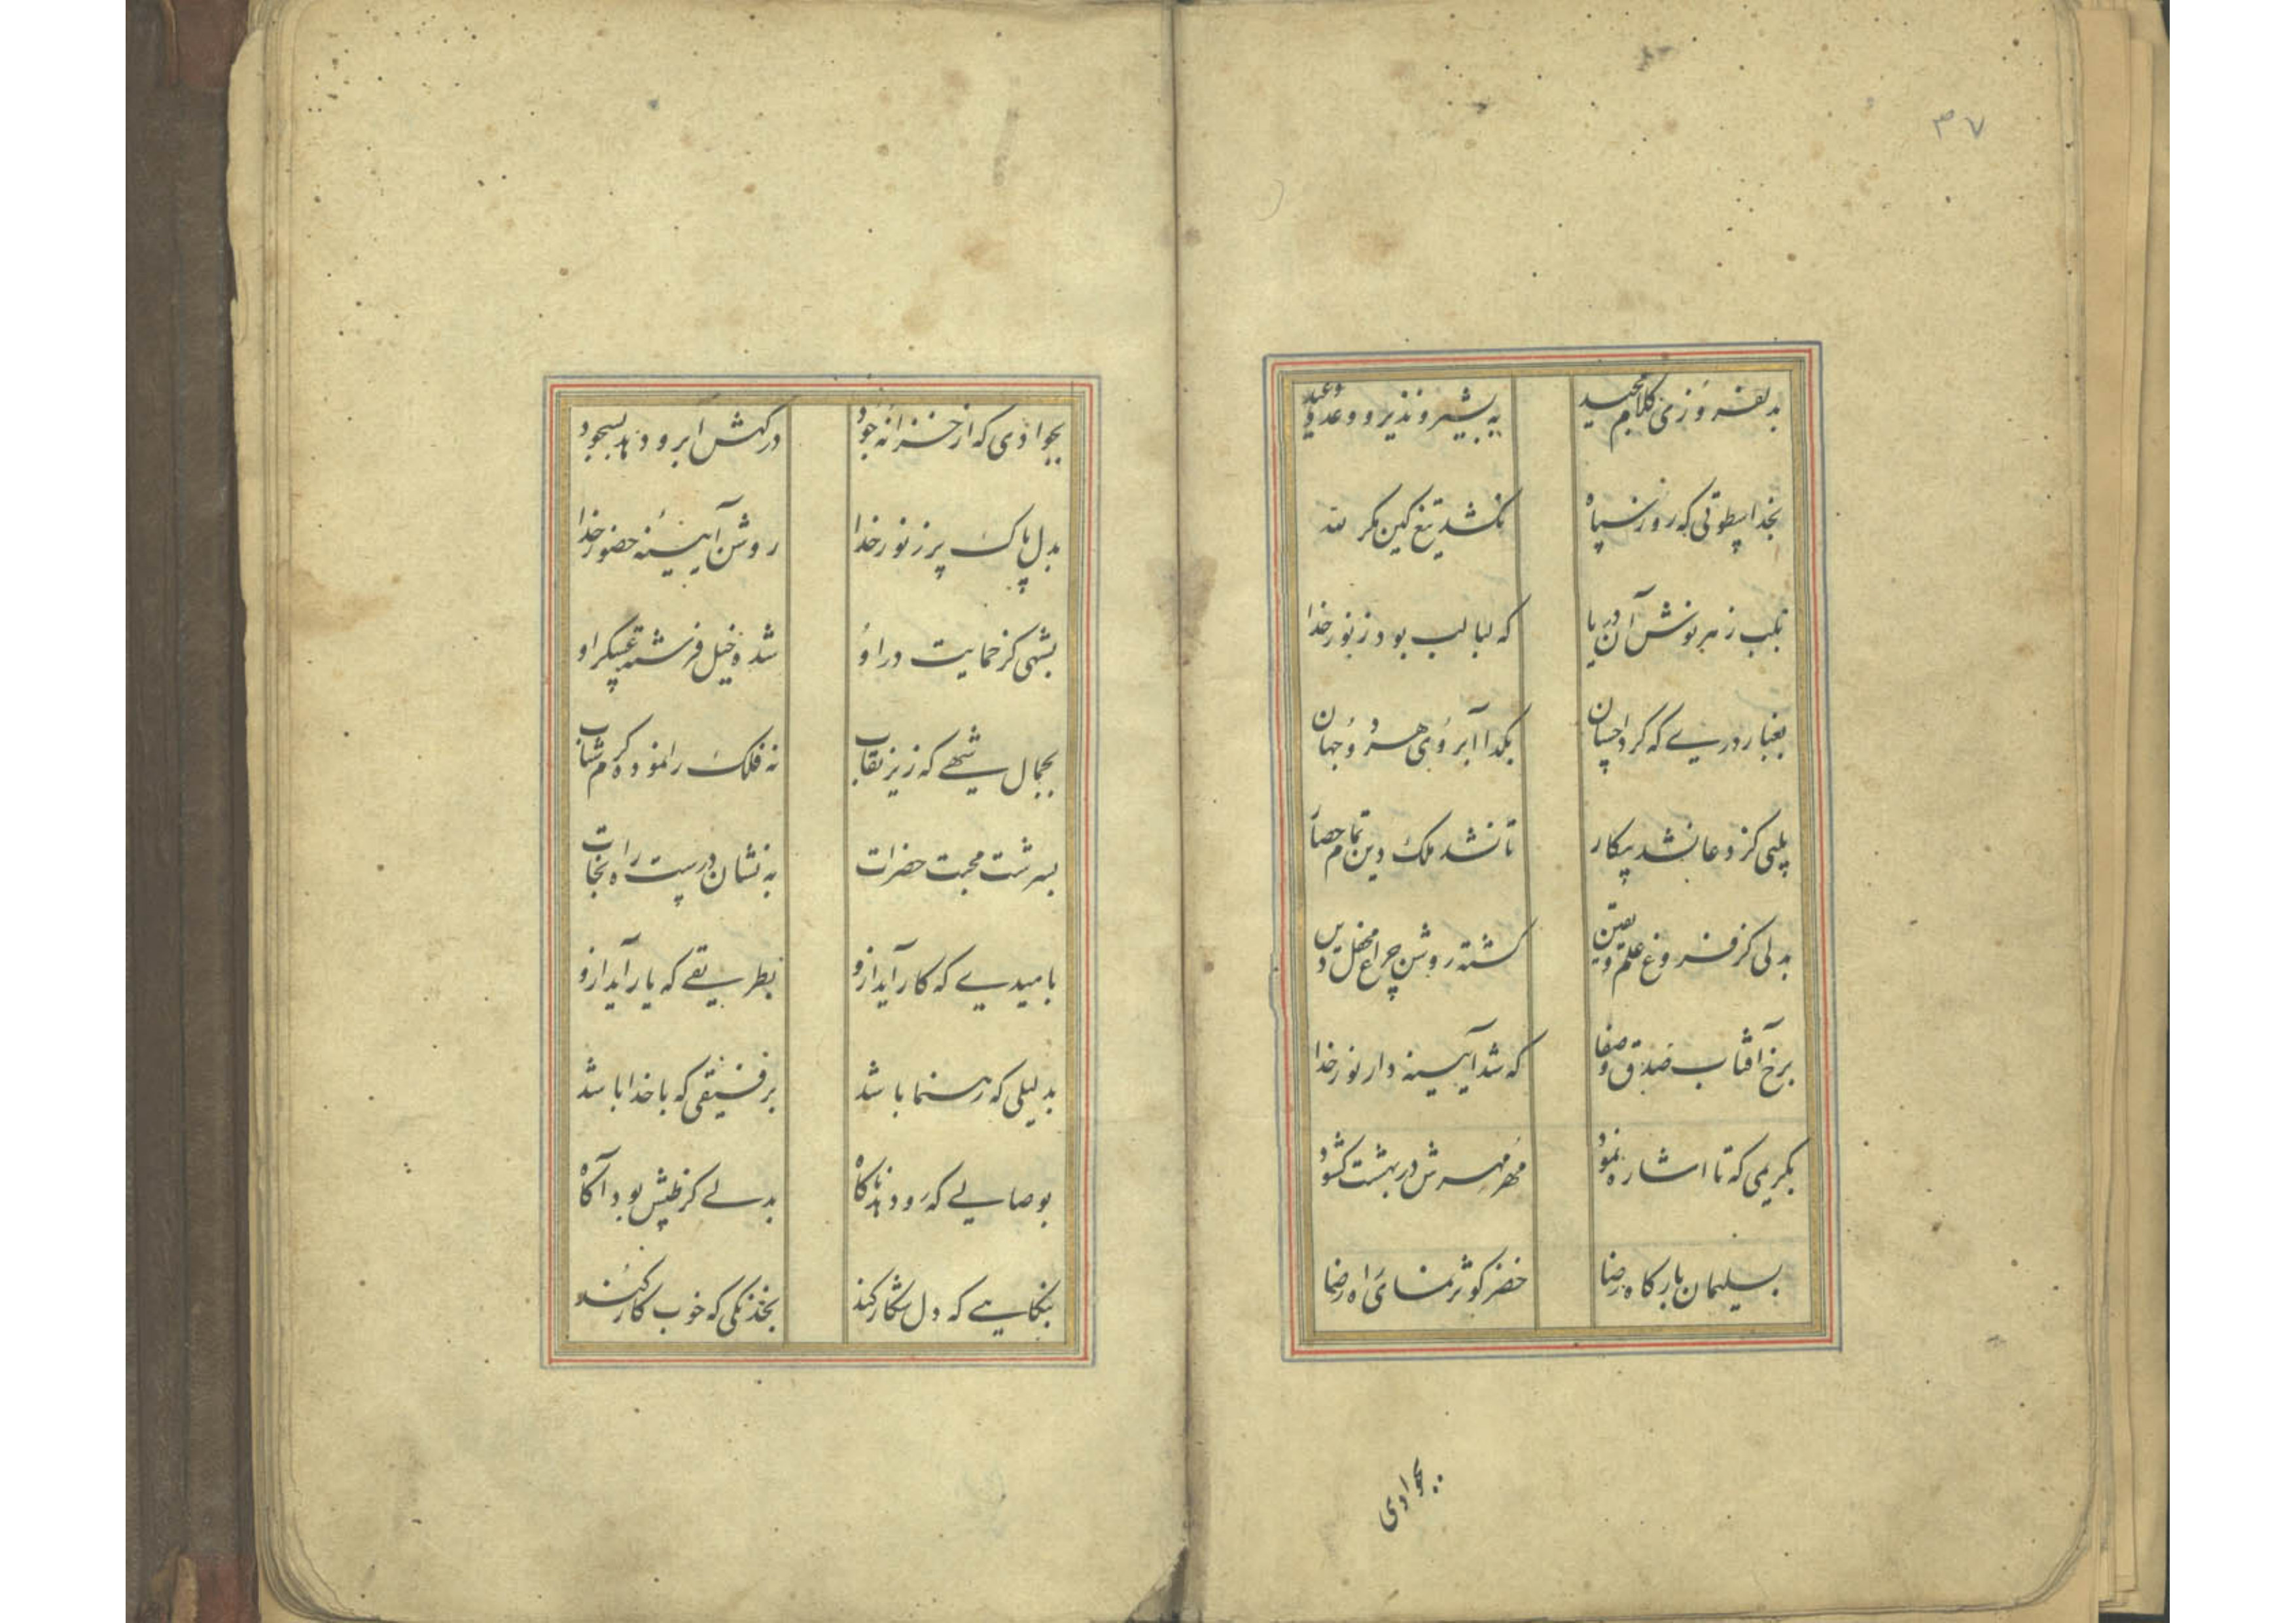 ۳۷
بدلفروزی کلام مجید
به بشیر و نذیر و وعد و وعید
بخدا سطوتی که روز سپاه
نکشد تیغ کین مکر لله
بلب زهر نوش آن دریا
که لبالب بود ز نور خدا
بغبار درے که کرد احسان
بکدا آبروی هر دو جهان
کز دعا نشد پیکار
تا نشد ملک دین تمام حصار
بدلی کز فروغ علم و یقین
کشته روشن چراغ محفل دین
برخ آفتاب صدق و صفا
که شد آیینه دار نور خدا
بکریمی که تا اشاره نمود
مهر مهرش در بهشت کشود
بسلیمان بارکاه رضا
خضر کوثر نمای راه رضا
بجوادی
بجوادی که از خزانه جود
درکهش ابر و دهد بسجود
بدل پاک پر ز نور خدا
روشن آیینه حضور خدا
بشهی کز حمایت در او
شد دخیل فرشته عسکر او
بجمال شهے که زیر نقاب
نه فلک را نموده کرم شتاب
بسرشت محبت حضرات
به نشان درست راه نجات
بامیدیے که کار آید ازو
بطریقے که یار آید ازو
بدلیلی که رهنما باشد
برفیقی که با خدا باشد
بوصالے که رو دهد ناکاه
بدلے کز طپش بود آکاه
بنکاهے که دل شکار کند
بخدنکی که خوب کار کند